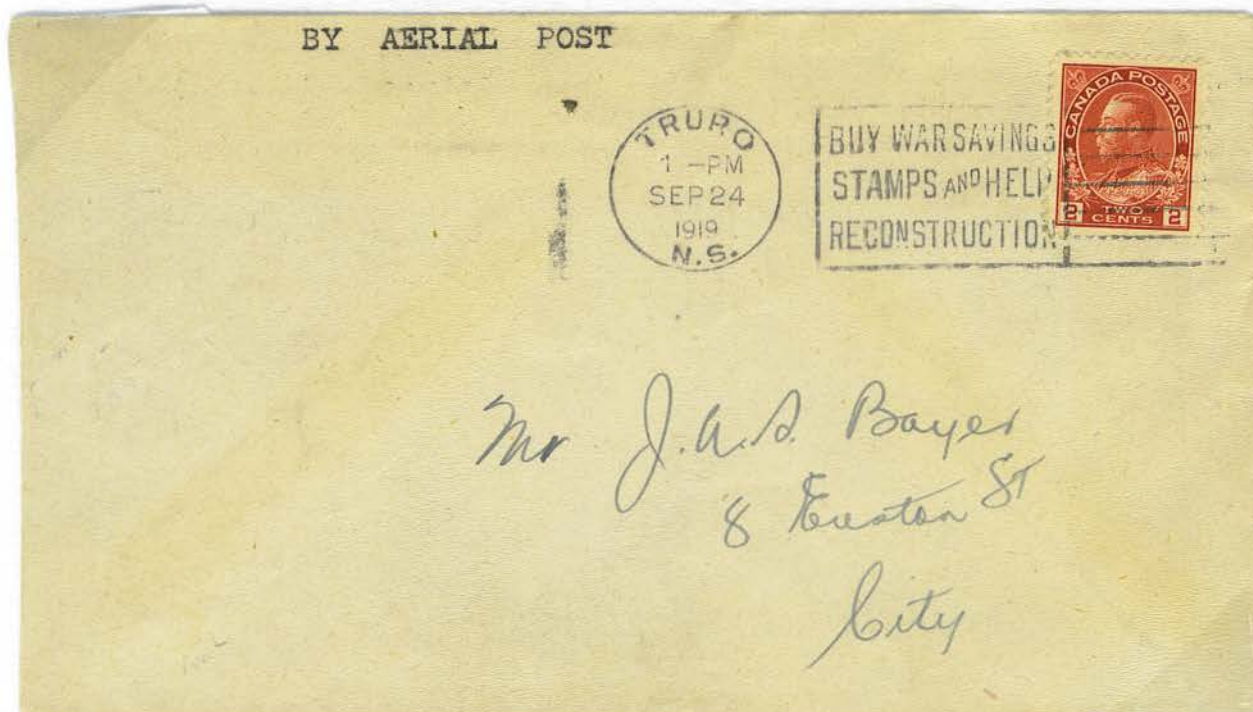 BY AERIAL POST
TRURO
1 -PM
SEP 24
1919
N.S.
BUY WAR SAVINGS
STAMPS AND HELP
RECONSTRUCTION
CANADA POSTAGE
2 TWO CENTS 2
Mr J.A.S. Bayer
8 Euston St
City